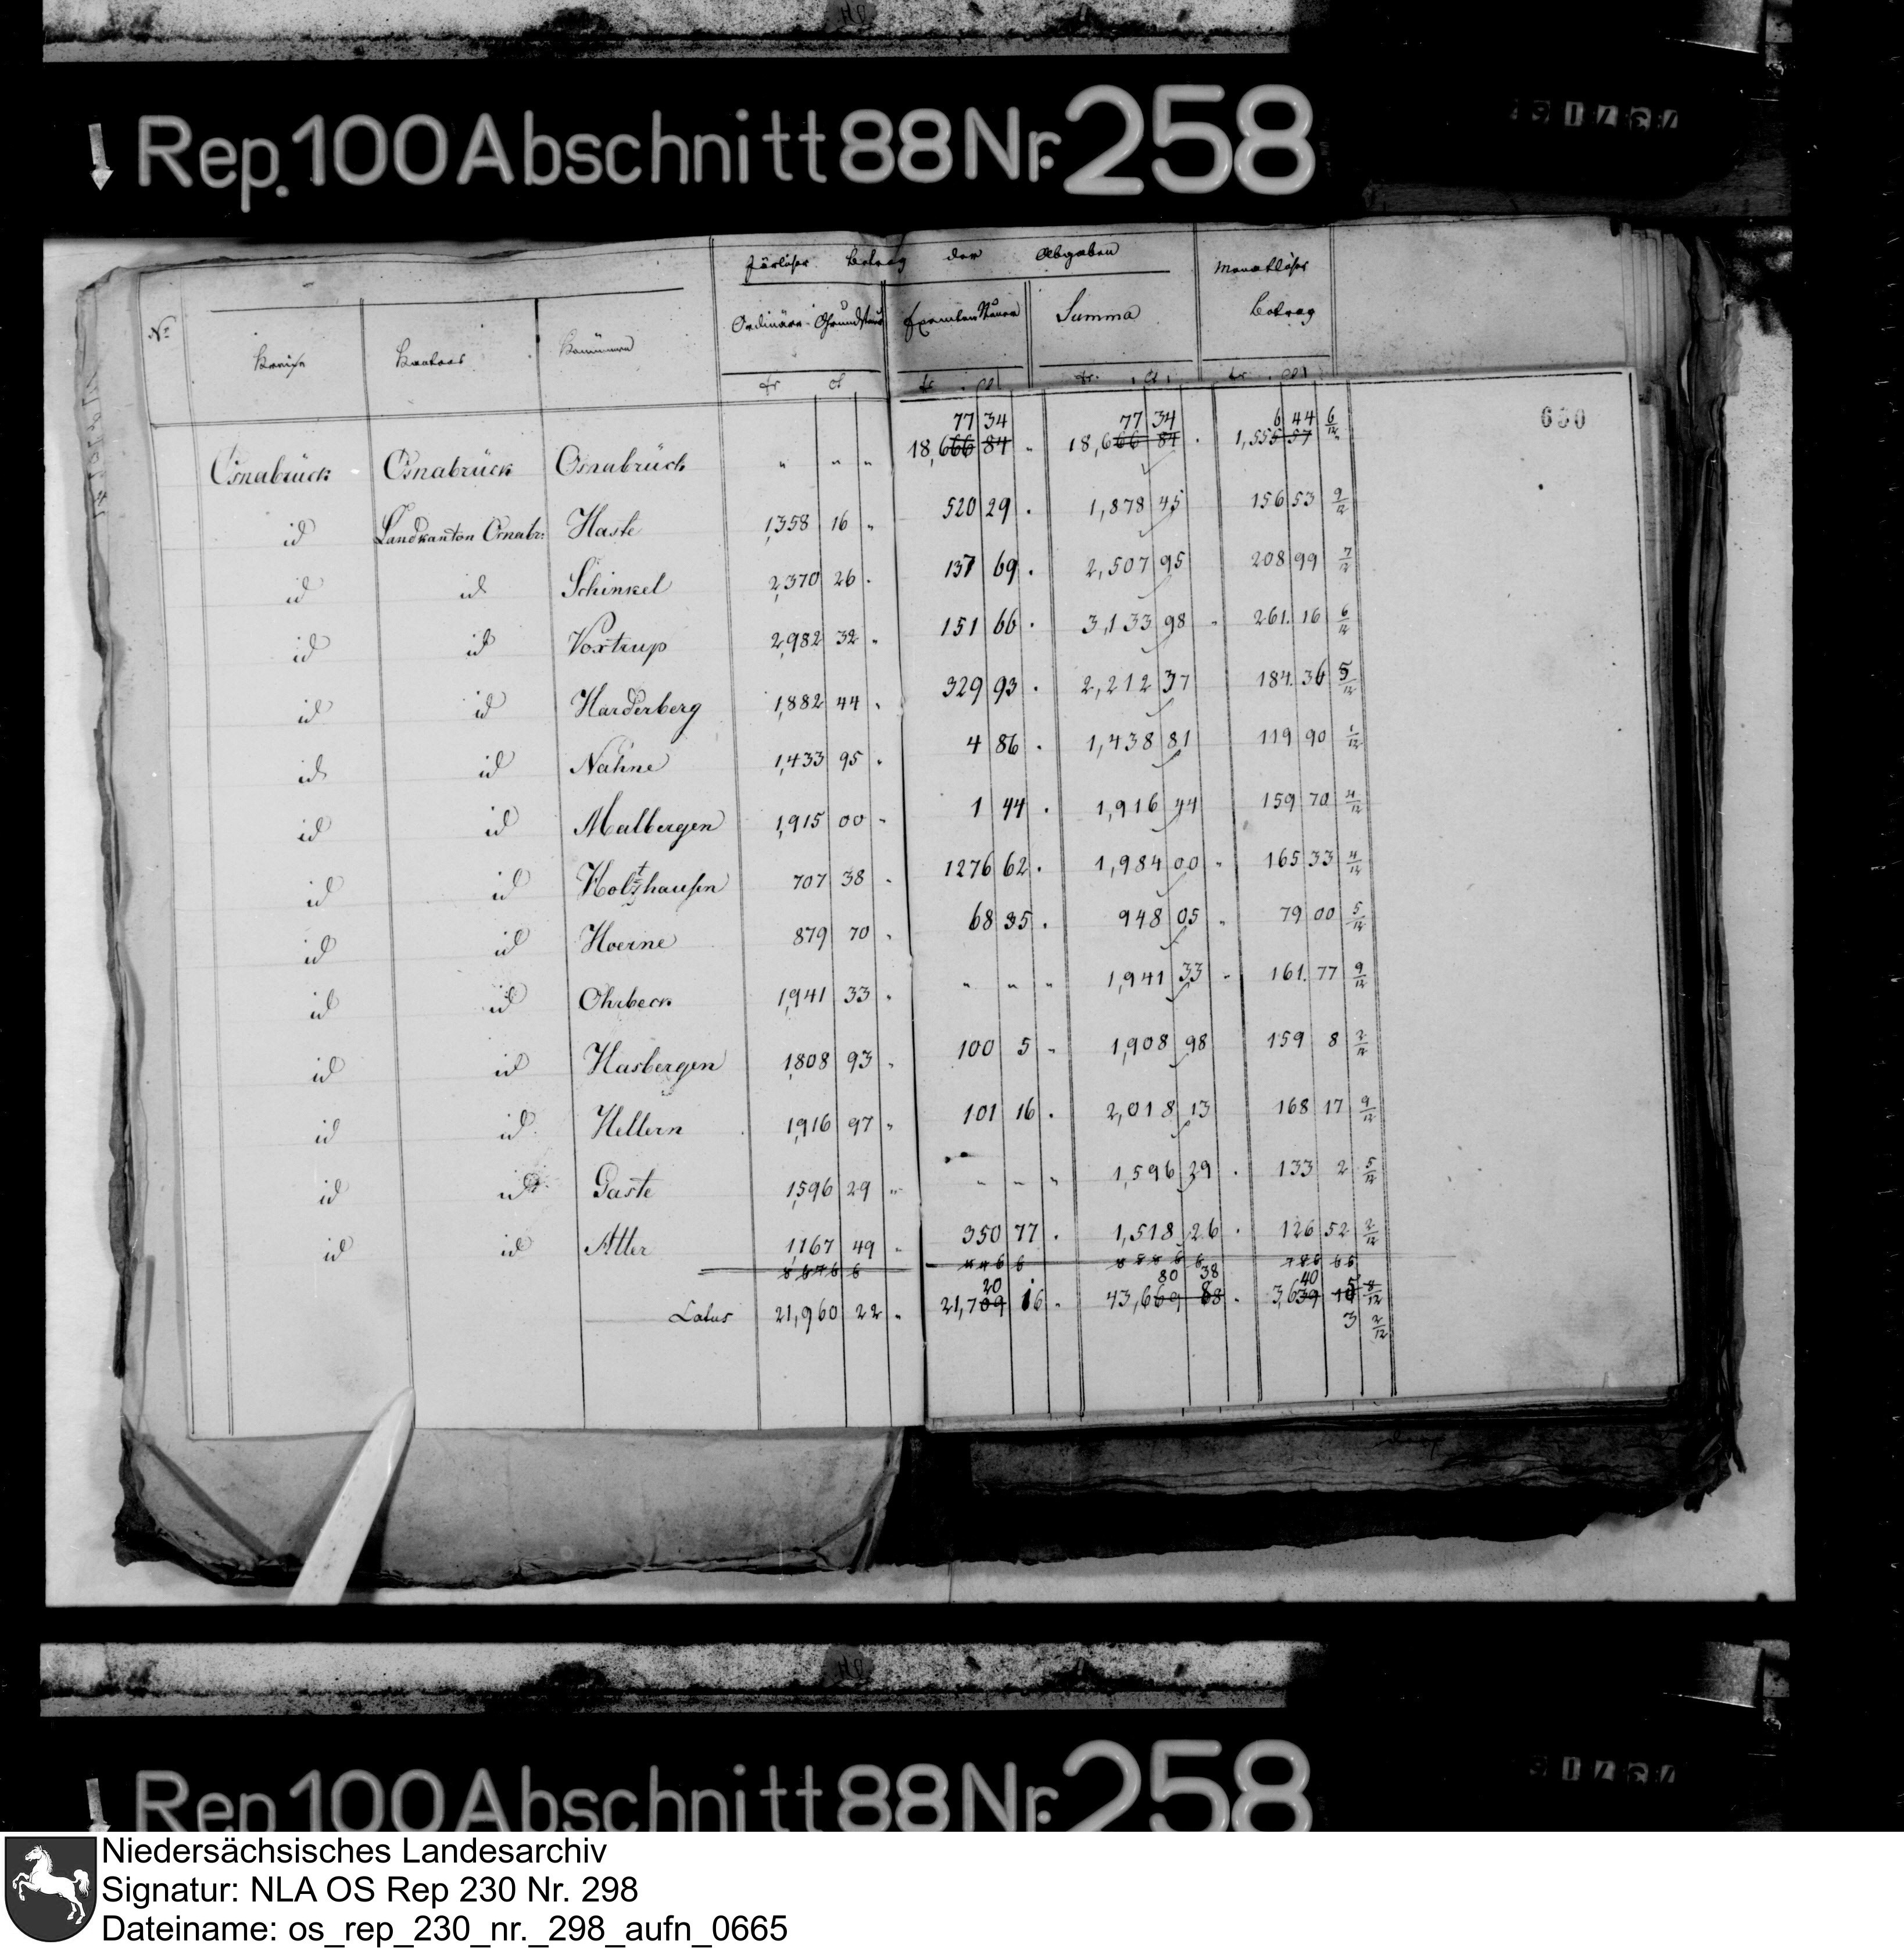 Rep. 100 Abschnitt 88 Nr. 258
Järlicher Betrag der Abgaben Monatlicher
Ordinäre Grundsteuer Exemten Steuer Summa Betrag
No Kreise Kantons Kommunen
fr ct fr ct fr. ct. fr ct
630
77 34 77 34 6 44 6/12
Osnabrück Osnabrück Osnabrück " " " 18,666 84 " 18,666 84 . 1,555 57
id Landkanton Osnabr: Haste 1,358 16 " 520 29 . 1,878 45 156 53 9/12
id id Schinkel 2,370 26 . 137 69 . 2,507 95 208 99 7/12
id id Voxtrup 2,982 32 " 151 66 . 3,133 98 " 261. 16 6/12
id id Harderberg 1,882 44 " 329 93 . 2,212 37 184. 36 5/12
id id Nahne 1,433 95 " 4 86 . 1,438 81 119 90 1/12
id id Malbergen 1,915 00 " 1 44 . 1,916 44 159 70 4/12
id id Holtzhausen 707 38 " 1276 62 . 1,984 00 " 165 33 4/12
id id Hoerne 879 70 " 68 35 . 948 05 " 79 00 5/12
id id Ohrbeck 1,941 33 " " " " 1,941 33 " 161. 77 9/12
id id Hasbergen 1,808 93 " 100 5 " 1,908 98 159 8 2/12
id id Hellern 1,916 97 " 101 16 . 2,018 13 168 17 9/12
id id Gaste 1,596 29 " " " " 1,596 29 . 133 2 5/12
id id Atter 1,167 49 " 350 77 . 1,518 26 . 126 52 2/12
20 80 38 40 5
Latus 21,960 22 " 21,709 16 " 43,669 38 . 3,639 10 8/12
3 2/12
Rep. 100 Abschnitt 88 Nr. 258
Niedersächsisches Landesarchiv
Signatur: NLA OS Rep 230 Nr. 298
Dateiname: os_rep_230_nr._298_aufn_0665